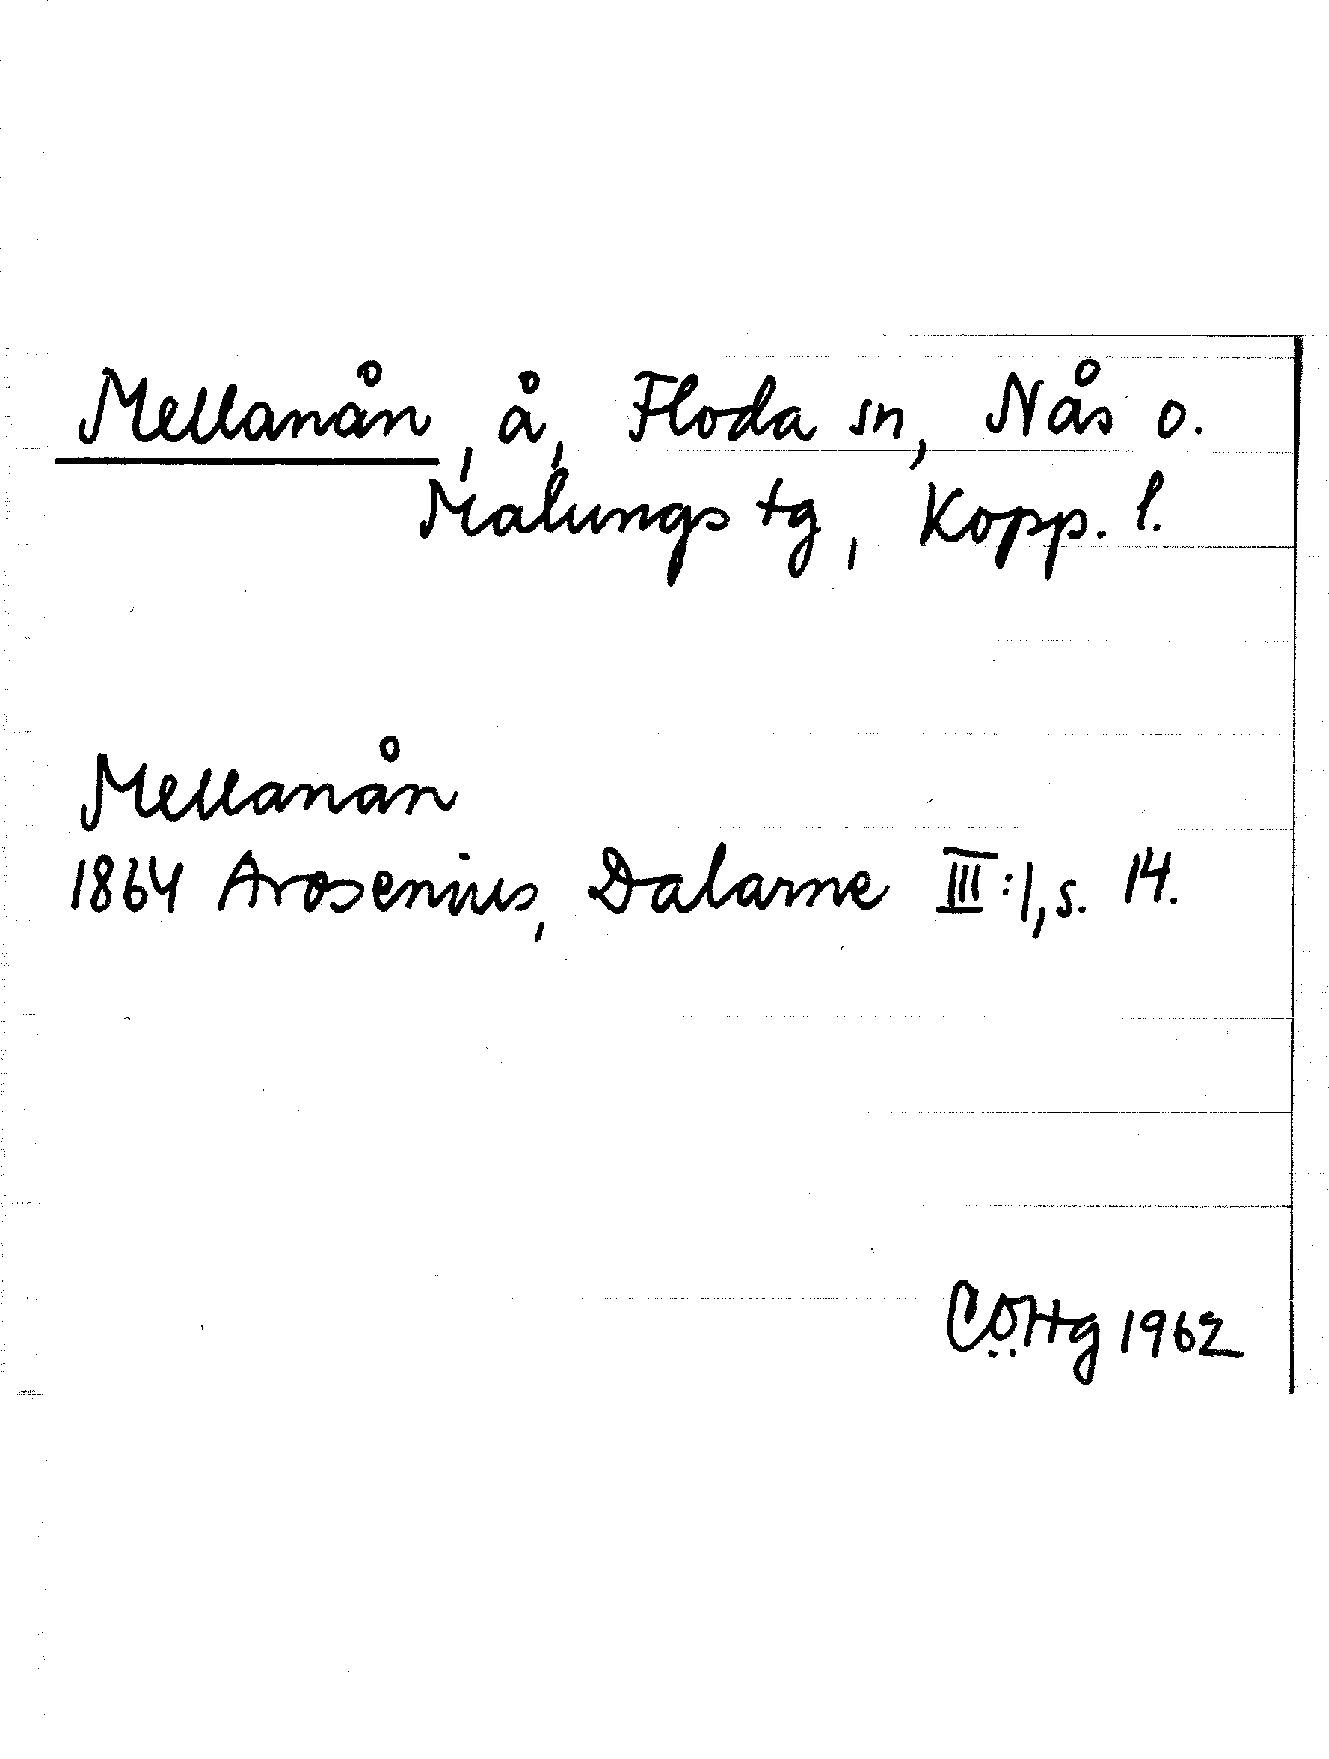 Mellanån, å, Floda sn, Nås o.
Malungs tg, Kopp. l.
Mellanån
1864 Arosenius, Dalarne III:1, s. 14.
CÖHg 1962